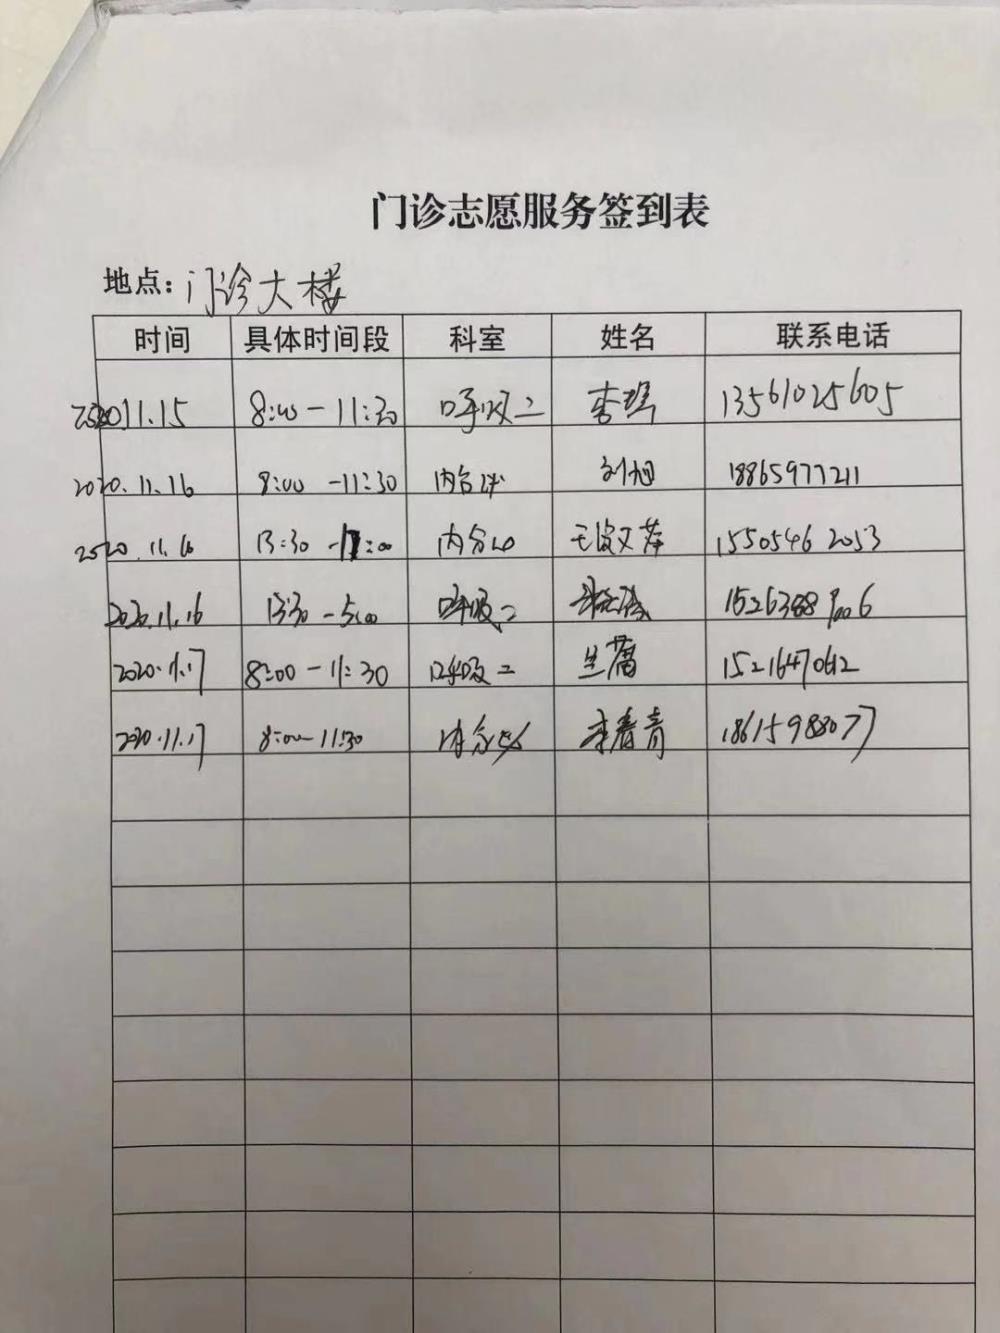 门诊志愿服务签到表
地点：门诊大楼
时间 具体时间段 科室 姓名 联系电话
2020.11.15 8:00-11:30 呼吸二 李瑶 13561025605
2020.11.16 8:00-11:30 内分泌 刘旭 18865977211
2020.11.16 13:30-17:00 内分泌 15505462053
2020.11.16 13:30-5:00 呼吸二
2020.11.17 8:00-11:30 呼吸二 15216470612
2020.11.17 8:00-11:30 内分泌 李春青 18615988077